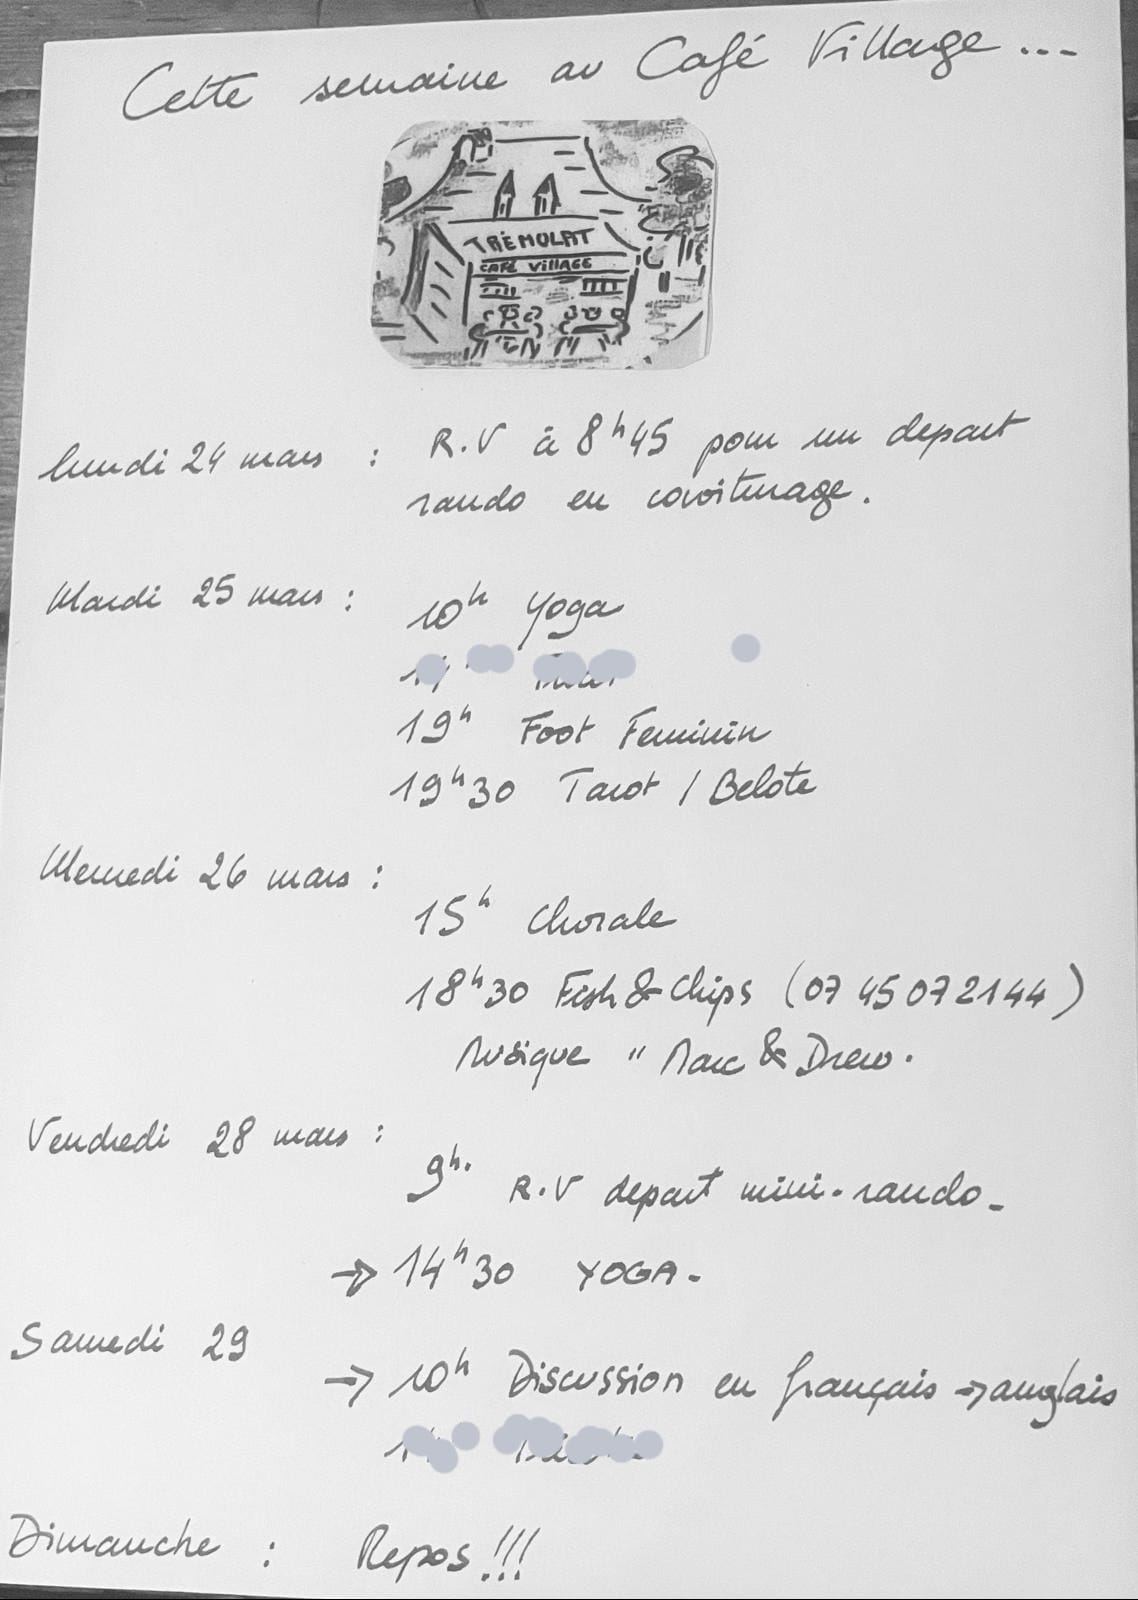 Cette semaine au Café Village ...
TRÉMOLAT
CAFÉ VILLAGE
lundi 24 mars : R.V à 8h45 pour un depart
rando en covoiturage.
Mardi 25 mars :
10h Yoga
19h Foot Feminin
19h30 Tarot / Belote
Mercredi 26 mars :
15h Chorale
18h30 Fish & Chips (07 45 07 21 44)
Musique " Marc & Drew.
Vendredi 28 mars :
9h. R.V depart mini-rando_
→ 14h30 YOGA-
Samedi 29
→ 10h Discussion en français → anglais
Dimanche : Repos !!!